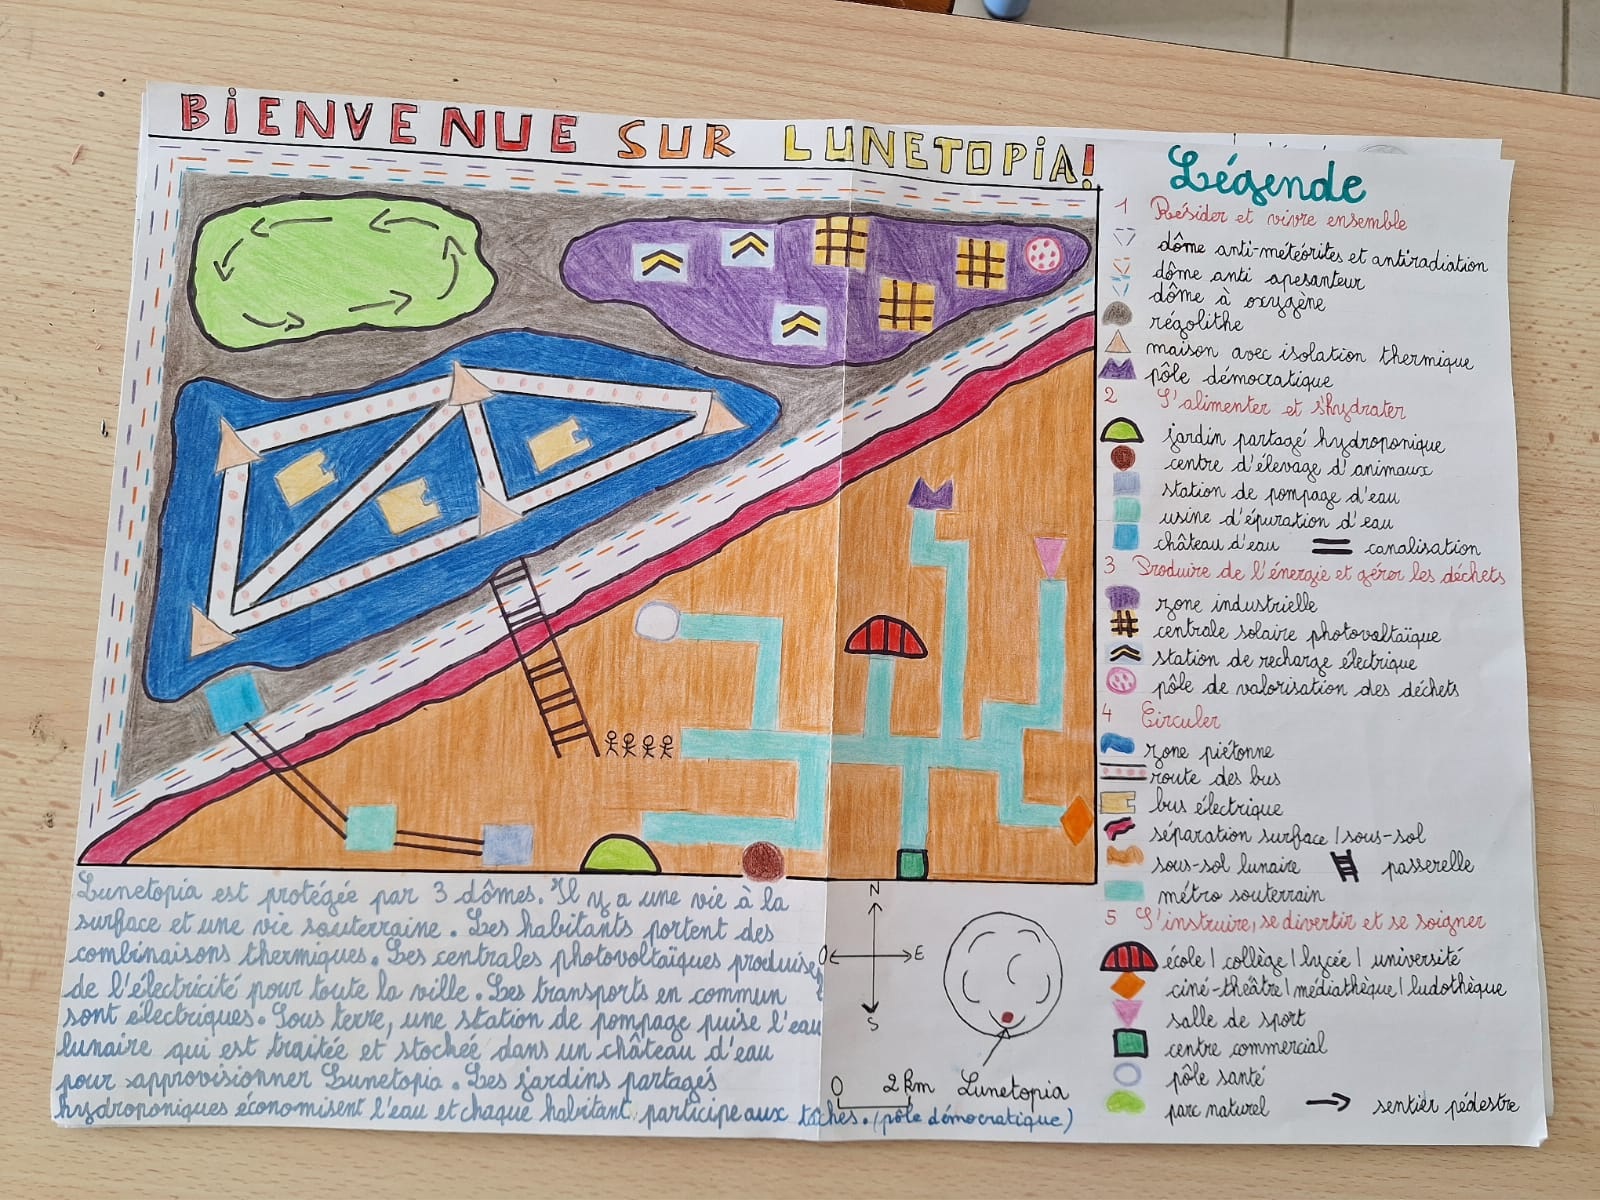 BIENVENUE SUR LUNETOPIA!
Légende
1 Résider et vivre ensemble
dôme anti-météorites et antiradiation
dôme anti apesanteur
dôme à oxygène
régolithe
maison avec isolation thermique
pôle démocratique
2 S'alimenter et s'hydrater
jardin partagé hydroponique
centre d'élevage d'animaux
station de pompage d'eau
usine d'épuration d'eau
château d'eau canalisation
3 Produire de l'énergie et gérer les déchets
zone industrielle
centrale solaire photovoltaïque
station de recharge électrique
pôle de valorisation des déchets
4 Circuler
zone piétonne
route des bus
bus électrique
séparation surface / sous-sol
sous-sol lunaire passerelle
métro souterrain
5 S'instruire, se divertir et se soigner
école / collège / lycée / université
ciné-théâtre / médiathèque / ludothèque
salle de sport
centre commercial
pôle santé
parc naturel sentier pédestre
Lunetopia est protégée par 3 dômes. Il y a une vie à la
surface et une vie souterraine. Les habitants portent des
combinaisons thermiques. Les centrales photovoltaïques produisent
de l'électricité pour toute la ville. Les transports en commun
sont électriques. Sous terre, une station de pompage puise l'eau
lunaire qui est traitée et stockée dans un château d'eau
pour approvisionner Lunetopia. Les jardins partagés
hydroponiques économisent l'eau et chaque habitant participe aux tâches. (pôle démocratique)
N
O E
S
0 2 km
Lunetopia